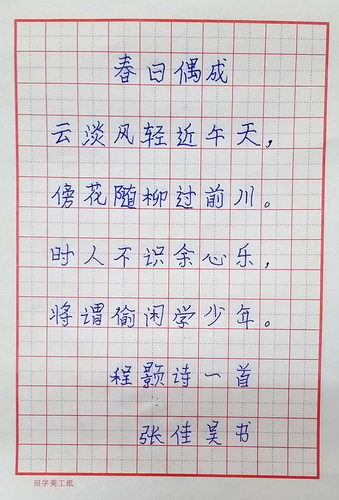 春日偶成
云淡风轻近午天，
傍花随柳过前川。
时人不识余心乐，
将谓偷闲学少年。
程颢诗一首
张佳昊书
田字美工纸